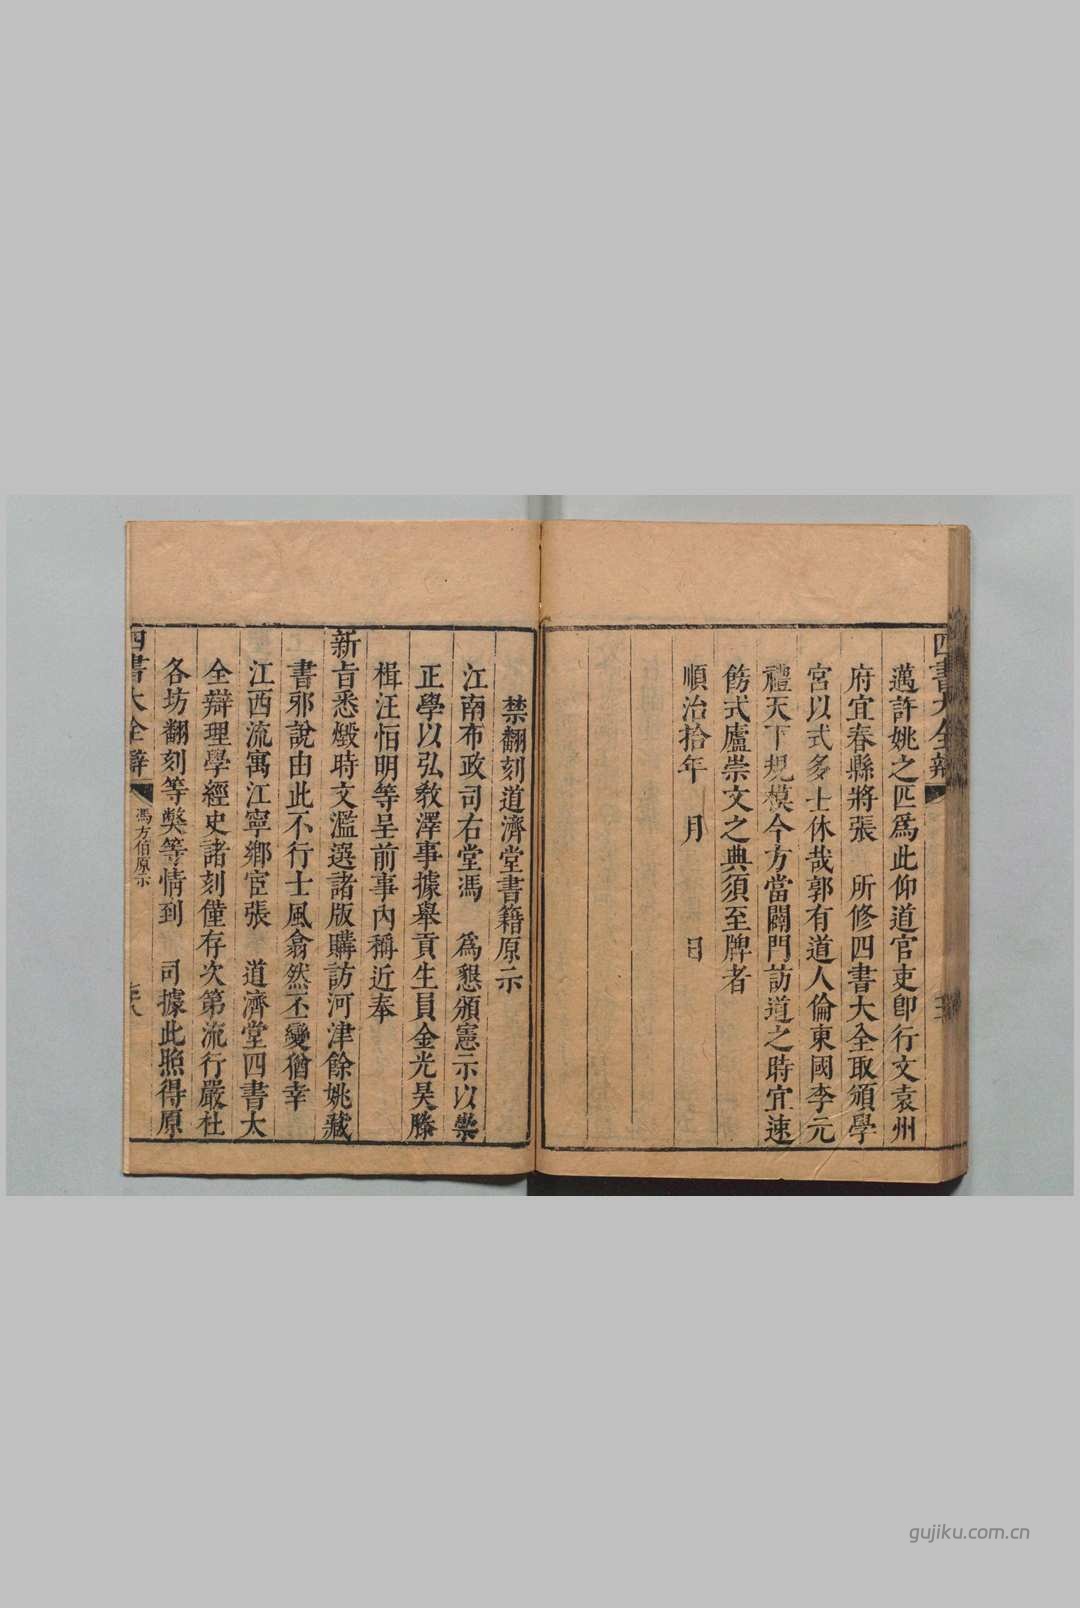 四書大全辯
邁許姚之匹爲此仰道官吏卽行文袁州
府宜春縣將張　所修四書大全取頒學
宮以式多士休哉郭有道人倫東國李元
禮天下規模今方當闢門訪道之時宜速
飭式廬崇文之典須至牌者
順治拾年　月　日
禁翻刻道濟堂書籍原示
江南布政司右堂馮　爲懇頒憲示以崇
正學以弘敎澤事據舉貢生員金光昊滕
楫汪怕明等呈前事內稱近奉
新旨悉燬時文濫選諸版購訪河津餘姚藏
書邪說由此不行士風翕然丕變猶幸
江西流寓江寧鄉宦張　道濟堂四書大
全辯理學經史諸刻僅存次第流行嚴杜
各坊翻刻等獘等情到　司據此照得原
四書大全辯
馮方伯原示
gujiku.com.cn